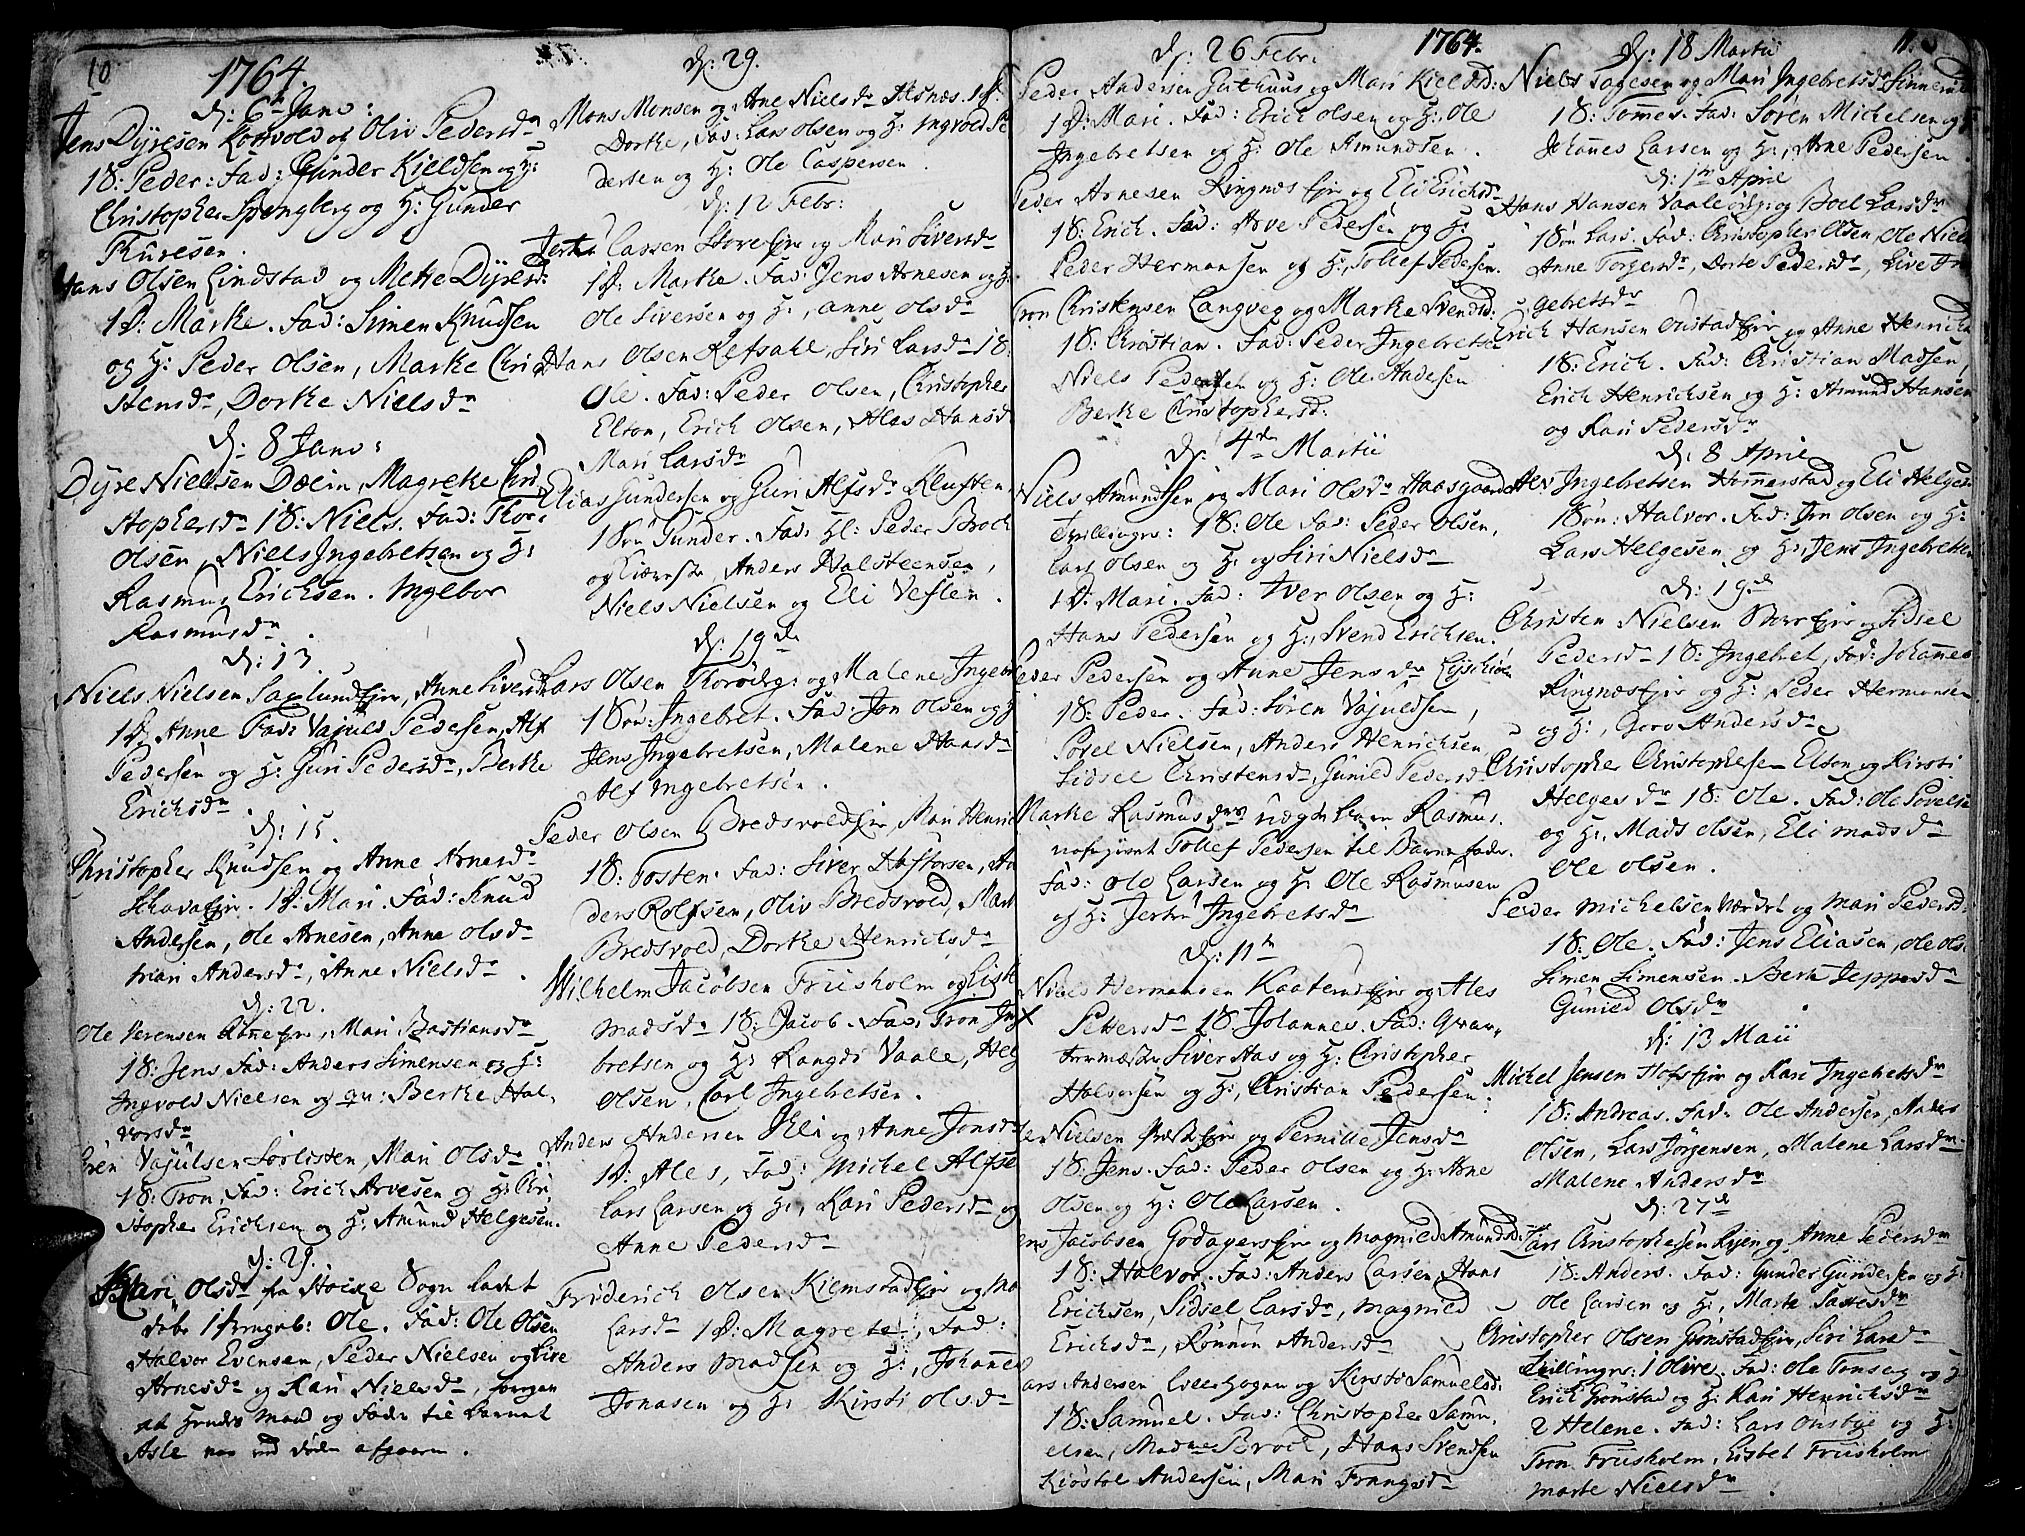 10
1764.
d: 6te Janv:
Jens Dyresen Kottvold og Oliv Pedersdr
1S: Peder: Fad: Gunder Kieldsen og H:
Christopher Spangberg og H: Gunder
Thuresen.
Hans Olsen Lindstad og Mette Dyresd:
1D: Marthe. Fad: Simen Knudsen
og H: Peder Olsen, Marthe Chri
stensdr, Dorthe Nielsdr
d: 8 Janv:
Dyre Nielsen Dælin, Magrethe Chri
stophersdr 1S: Niels. Fad: Thor
Olsen, Niels Ingebretsen og H:
Rasmus Erichsen. Ingebor
Rasmusdr.
d: 13
Niels Nielsen Saxlund Ejer, Anne Siversdr
1D. Anne Fad: Vajuls Pedersen, Alf
Pedersen og H: Guri Pedersdr, Berthe
Erichsdr
d: 15.
Christopher Knudsen og Anne Arnesdr
1D. Mari. Fad: Knud
Andersen, Ole Arnesen, Anne Olsdr
Mari Andersdr, Anne Nielsdr.
d: 22.
Ole Verensen Mari Bastiansdr
1S: Jens Fad: Anders Simensen og H:
Ingvold Nielsen og qv: Berthe Hal,
vorsdr
Vajulsen Sørlisten, Mari Olsdr
1S: Tron, Fad: Erich Arvesen og H: Chri
stopher Erichsen og H: Amund Helgesen.
d: 29.
Kari Olsdr fra Sogn ladet
døbe 1 Ole. Fad: Ole Olsen
Halvor Evensen, Peder Nielsen og Live
Arnesdr og Kari Nielsdr,
at hendes Mand og Fader til Barnet
Asle var ved døden afgaaen.
d: 29.
Mons Monsen og Ane Nielsdr Alsnæs. 1D:
Dorthe, Fad: Lars Olsen og H: Ingvold Pe
dersen og H: Ole Caspersen.
d: 12 Febr:
Larsen og Mari Siversdr
1D: Marthe. Fad: Jens Arnesen og H:
Ole Siversen og H:, Anne Olsdr
Hans Olsen Refsahl, Siri Larsdr 1S:
Ole. Fad: Peder Olsen, Christopher
Elton, Erich Olsen, Ales Hansd
Mari Larsdr
Elias Gundersen og Guri Alfsdr Kluften
1Søn Gunder. Fad: Hl: Peder Broch
og Kiæreste, Anders Halsteensen,
Niels Nielsen og Eli Veflen.
d: 19de
Lars Olsen og Malene Ingebr
1Søn: Ingebret. Fad: Jon Olsen og H
Jens Ingebretsen, Malene Hansdr
Alf Ingebretsen.
Peder Olsen Bredsvold Mari Henric
1S: Tosten. Fad: Siver Haftorsen, An
ders Rolfsen, Oliv Bredsvold, Mart
Bredsvold, Dorthe Henrichsdr
Wilhelm Jacobsen Friisholm og Lisb
Madsdr 1S: Jacob. Fad: Tron Inge
bretsen og H: Rangdi Vaale, Helg
Olsen, Carl Ingebretsen.
Anders Andersen Eli og Anne Jonsdr
1D: Ales, Fad: Michel Alfse
Lars Larsen og H:, Kari Pedersdr og
Anne Pedersdr
Friderich Olsen Kiemstad og Ma
Larsdr 1D: Magrete, Fad:
Anders Madsen og H:, Johannes
Jonasen og H: Kirsti Olsdr
d: 26 Febr.
1764.
Peder Andersen Guthuus og Mari Kieldsd:
1D: Mari. Fad: Erich Olsen og H: Ole
Ingebretsen og H: Ole Amundsen.
Peder Arnesen Ringnæs og Eli Erichsdr
1S: Erich. Fad: Arve Pedersen og H:
Peder Hermansen og H:, Tollef Pedersen.
Tron Christensen Langveg og Marthe Svendsd:
1S: Christian. Fad: Peder Ingebrets
Niels Pedersen og H: Ole Andesen
Berthe Christophersd:
d: 4de Martii
Niels Amundsen og Mari Olsdr Haasgaard
Tvillinger: 1S: Ole Fad: Peder Olsen,
Lars Olsen og H: og Siri Nielsdr
1D: Mari. Fad: Iver Olsen og H:
Hans Pedersen og H:, Svend Erichsen.
Peder Pedersen og Anne Jensdr
1S: Peder. Fad: Søren Vajuldsen,
Povel Nielsen, Anders Henrichsen,
Sidsel Christensdr, Gunild Pedersd
Marthe Rasmusdr Rasmus.
Tollef Pedersen til Barne fader.
Fad: Ole Larsen og H: Ole Rasmusen
og H: Jertrú Ingebretsdr
d: 11te
Niels Hermansen og Ales
Pettersdr 1S Johannes. Fad: Qvar,
termæster Siver Aas og H: Christopher
Halvorsen og H:, Christian Pedersen.
Nielsen og Pernille Jensdr
1S: Jens. Fad: Peder Olsen og H: Arne
Olsen og H: Ole Larsen.
Jens Jacobsen Godager og Magnild Amundsd:
1S: Halvor. Fad: Anders Larsen, Hans
Erichsen, Sidsel Larsdr, Magnild
Erichsdr, Rønnou Andersdr
Lars Andersen og Kirsti Samuelsd:
1S: Samuel. Fad: Christopher Samu,
elsen, Madme Broch, Hans Svendsen
Kiøstol Andersen, Mari Frangsdr
d: 18 Martii
11.
Niels Tagesen og Mari Ingebretsdr
1S: Tommes. Fad: Søren Michelsen og H
Johannes Larsen og H:, Arne Pedersen.
d: 1te April
Hans Hansen Vaale og Boel Larsdr
1Søn Lars Fad: Christopher Olsen, Ole Niel
Anne Torgersdr, Dorte Pedersdr, Live In
gebretsdr
Erich Hansen Onstad og Anne Henrichs
1S: Erich. Fad: Christian Madsen,
Erich Henrichsen og H: Amund Hansen
og Kari Pedersdr
d: 8 April
Alv Ingebretsen Hommerstad og Eli Helges
1Søn: Halvor. Fad: Jon Olsen og H:
Lars Helgesen, og H:, Jens Ingebretsen
d: 19de
Christen Nielsen og Sidsel
Pedersdr 1S: Ingebret, Fad: Johannes
Ringnæs og H:, Peder Hermansen
og H:, Goro Andersdr
Christopher Christophersen Elton og Kirsti
Helgesdr 1S: Ole. Fad: Ole Povelse
og H:, Mads Olsen, Eli Madsdr
Ole Olsen.
Peder Michelsen og Mari Pedersd:
1S: Ole. Fad: Jens Eliasen, Ole Ols
Simen Simensen. Berte Jeppesdr
Gunild Olsdr.
d: 13 Maii
Michel Jensen og Kari Ingebretsdr
1S: Andreas. Fad: Ole Andersen, Anders
Olsen, Lars Jørgensen, Malene Larsdr
Malene Andersdr
d: 27de
Lars Christophersen Ryen og Anne Pedersdr
1S: Anders. Fad: Gunder Gundersen og H:
Ole Larsen og H:, Marte
Christopher Olsen Gonstad, Siri Larsdr
Tvillinger: 1 Olive. Fad: Ole og H:
Erich Gonstad og H: Kari Henrichsdr
2 Helene. Fad: Lars Onsbye og H:
Tron Friisholm, Lisbet Friisholm
Marte Nielsdr.